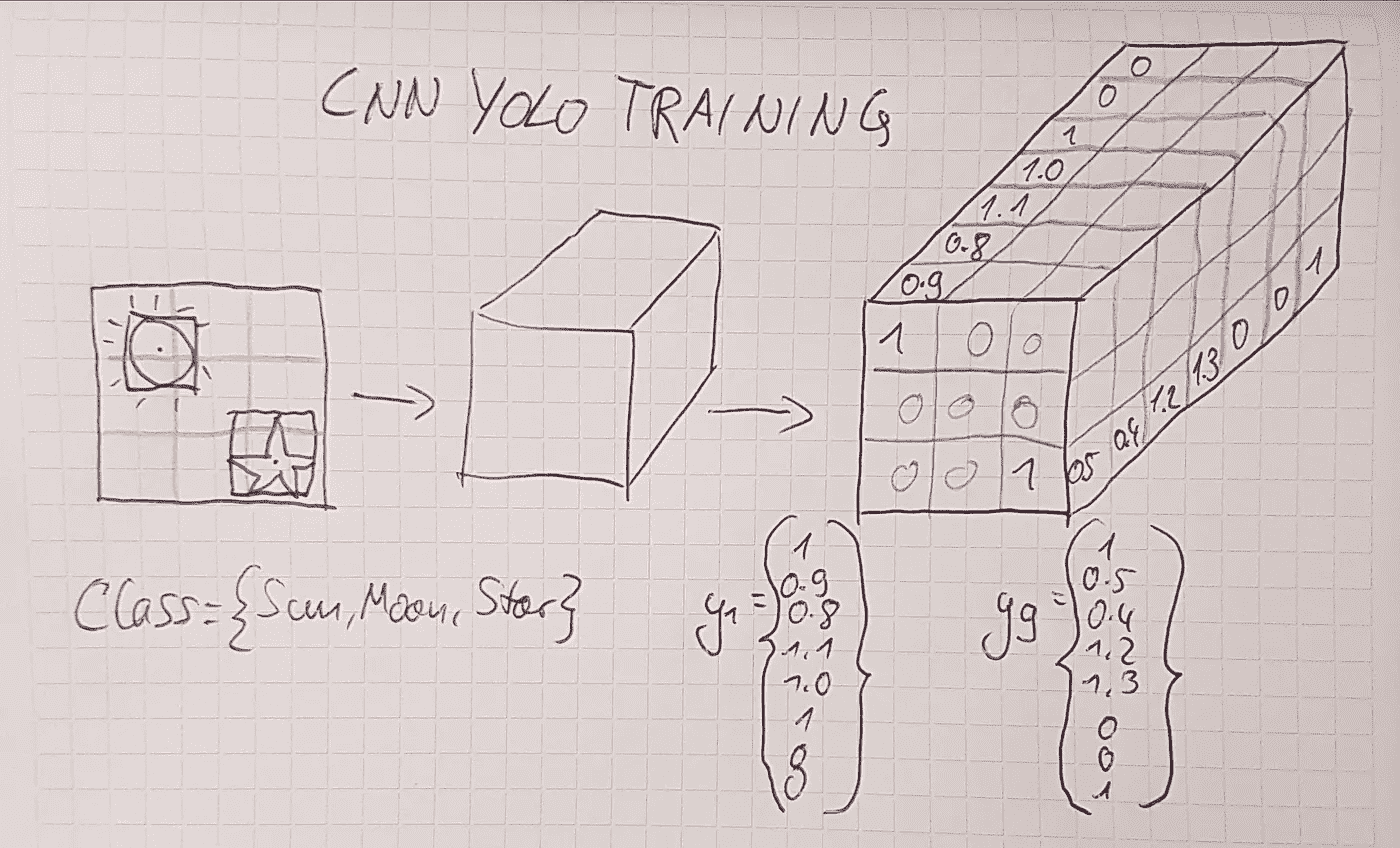 CNN YOLO TRAINING
0
0
1
1.0
1.1
0.8
0.9
1 0 0
0 0 0
0 0 1
0.5 0.4 1.2 1.3 0 0 1
Class={Sun, Moon, Star}
y1 =
1
0.9
0.8
1.1
1.0
1
0
0
y9 =
1
0.5
0.4
1.2
1.3
0
0
1